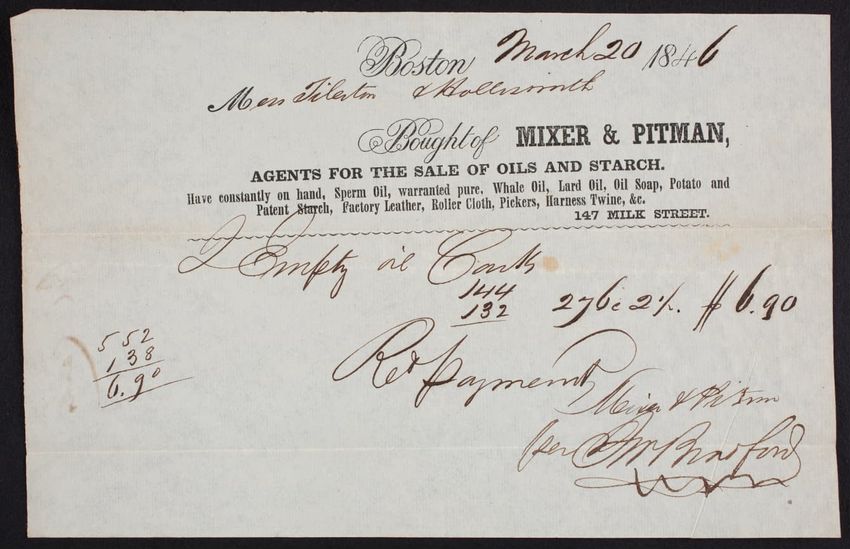 Boston March 20 1846
Mess Tileston & Hollisworth
Bought of MIXER & PITMAN,
AGENTS FOR THE SALE OF OILS AND STARCH.
Have constantly on hand, Sperm Oil, warranted pure, Whale Oil, Lard Oil, Oil Soap, Potato and
Patent Starch, Factory Leather, Roller Cloth, Pickers, Harness Twine, &c.
147 MILK STREET.
2 Empty oil Casks
144
132 276 c 2½. $6.90
5 52
1 38
6.90
Rec Payment
Mixer & Pitman
per Bradford